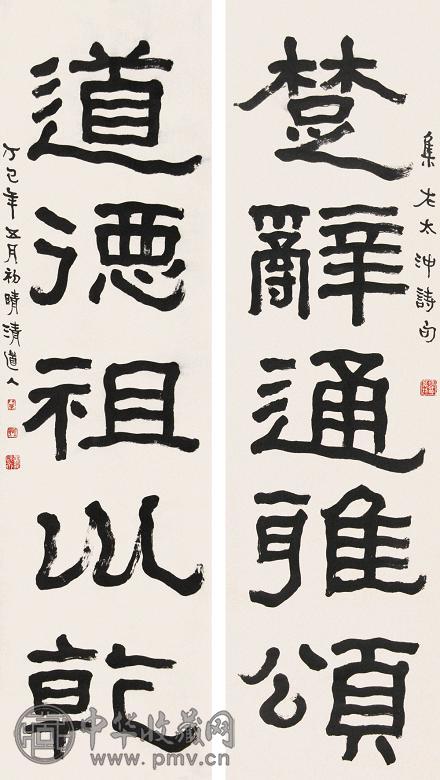 集左太沖詩句
楚辭通雅頌
道德祖巛乾
丁巳年五月初晴清道人
中华收藏网
www.pmv.cn